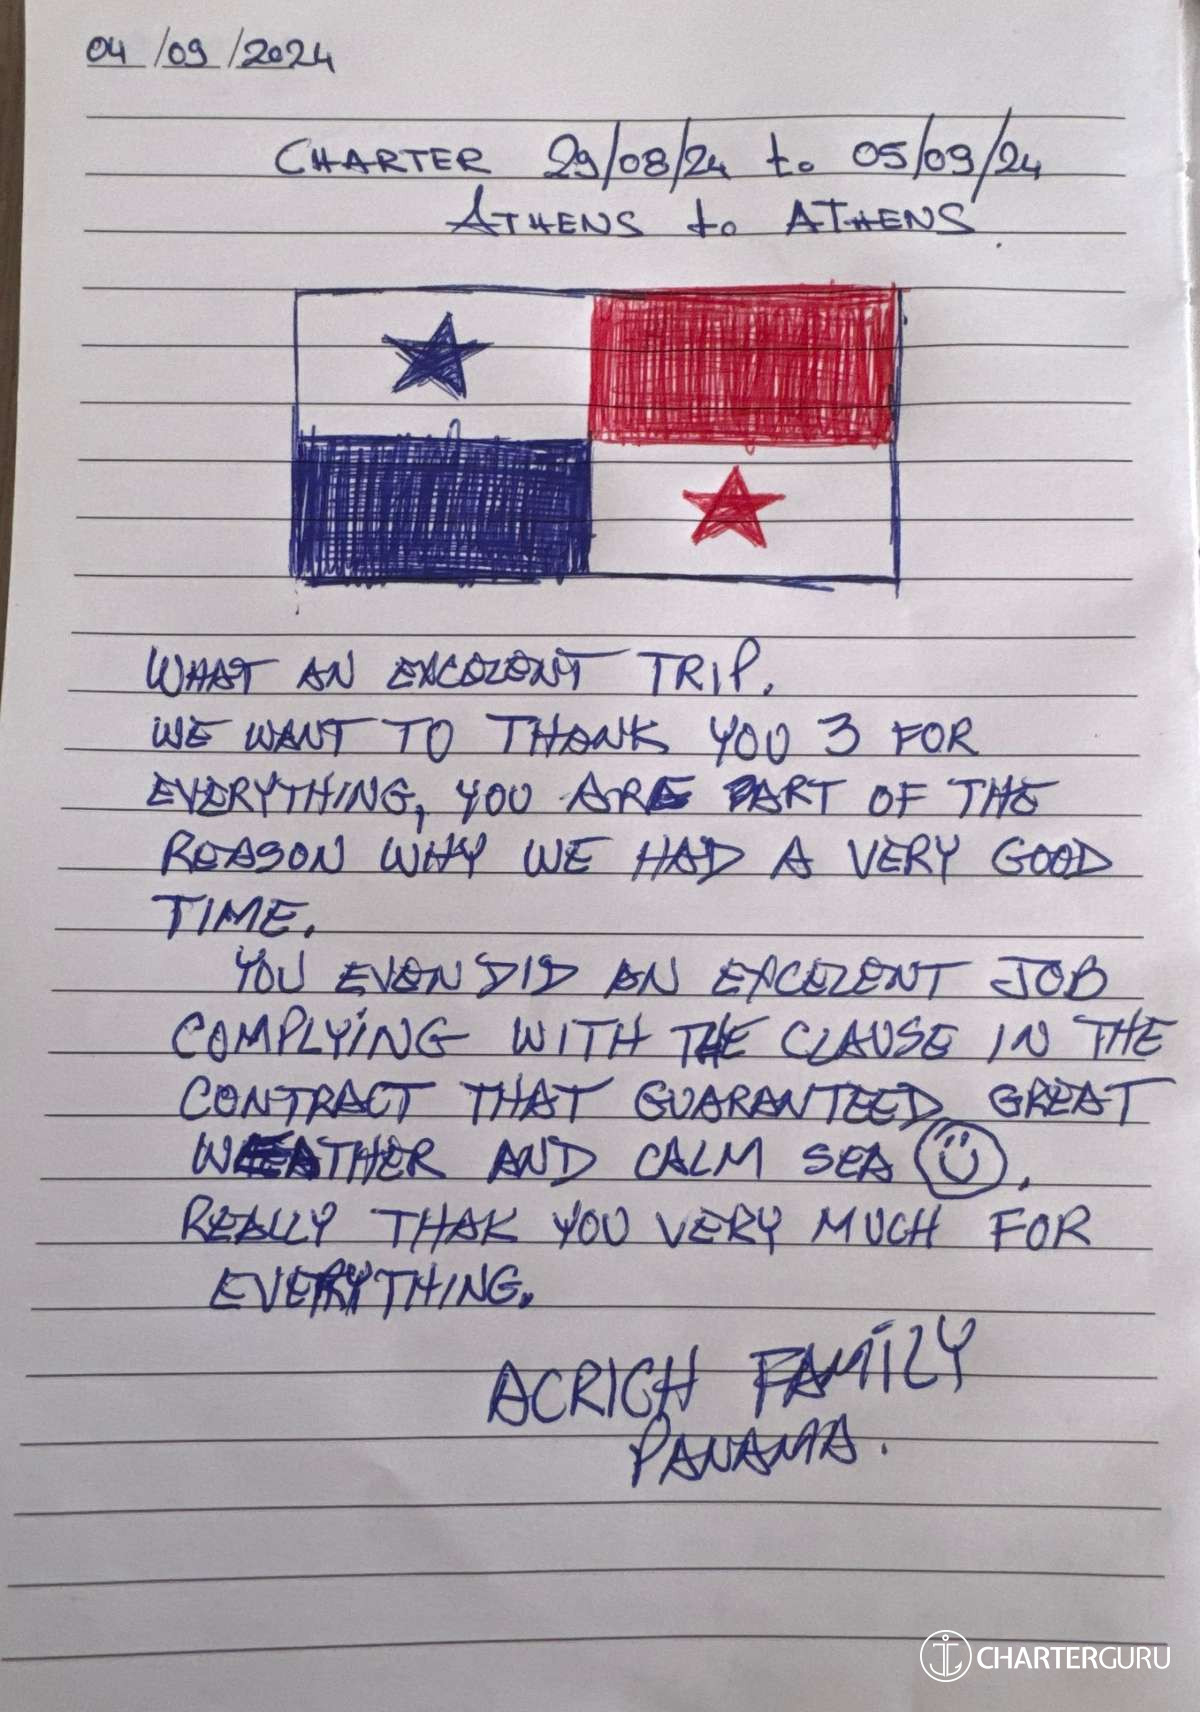 04/09/2024
CHARTER 29/08/24 to 05/09/24
ATHENS to ATHENS
WHAT AN EXCELENT TRIP.
WE WANT TO THANK YOU 3 FOR
EVERYTHING, YOU ARE PART OF THE
REASON WHY WE HAD A VERY GOOD
TIME.
YOU EVEN DID AN EXCELENT JOB
COMPLYING WITH THE CLAUSE IN THE
CONTRACT THAT GUARANTEED GREAT
WEATHER AND CALM SEA.
REALLY THAK YOU VERY MUCH FOR
EVERYTHING.
ACRICH FAMILY
PANAMA.
CHARTERGURU